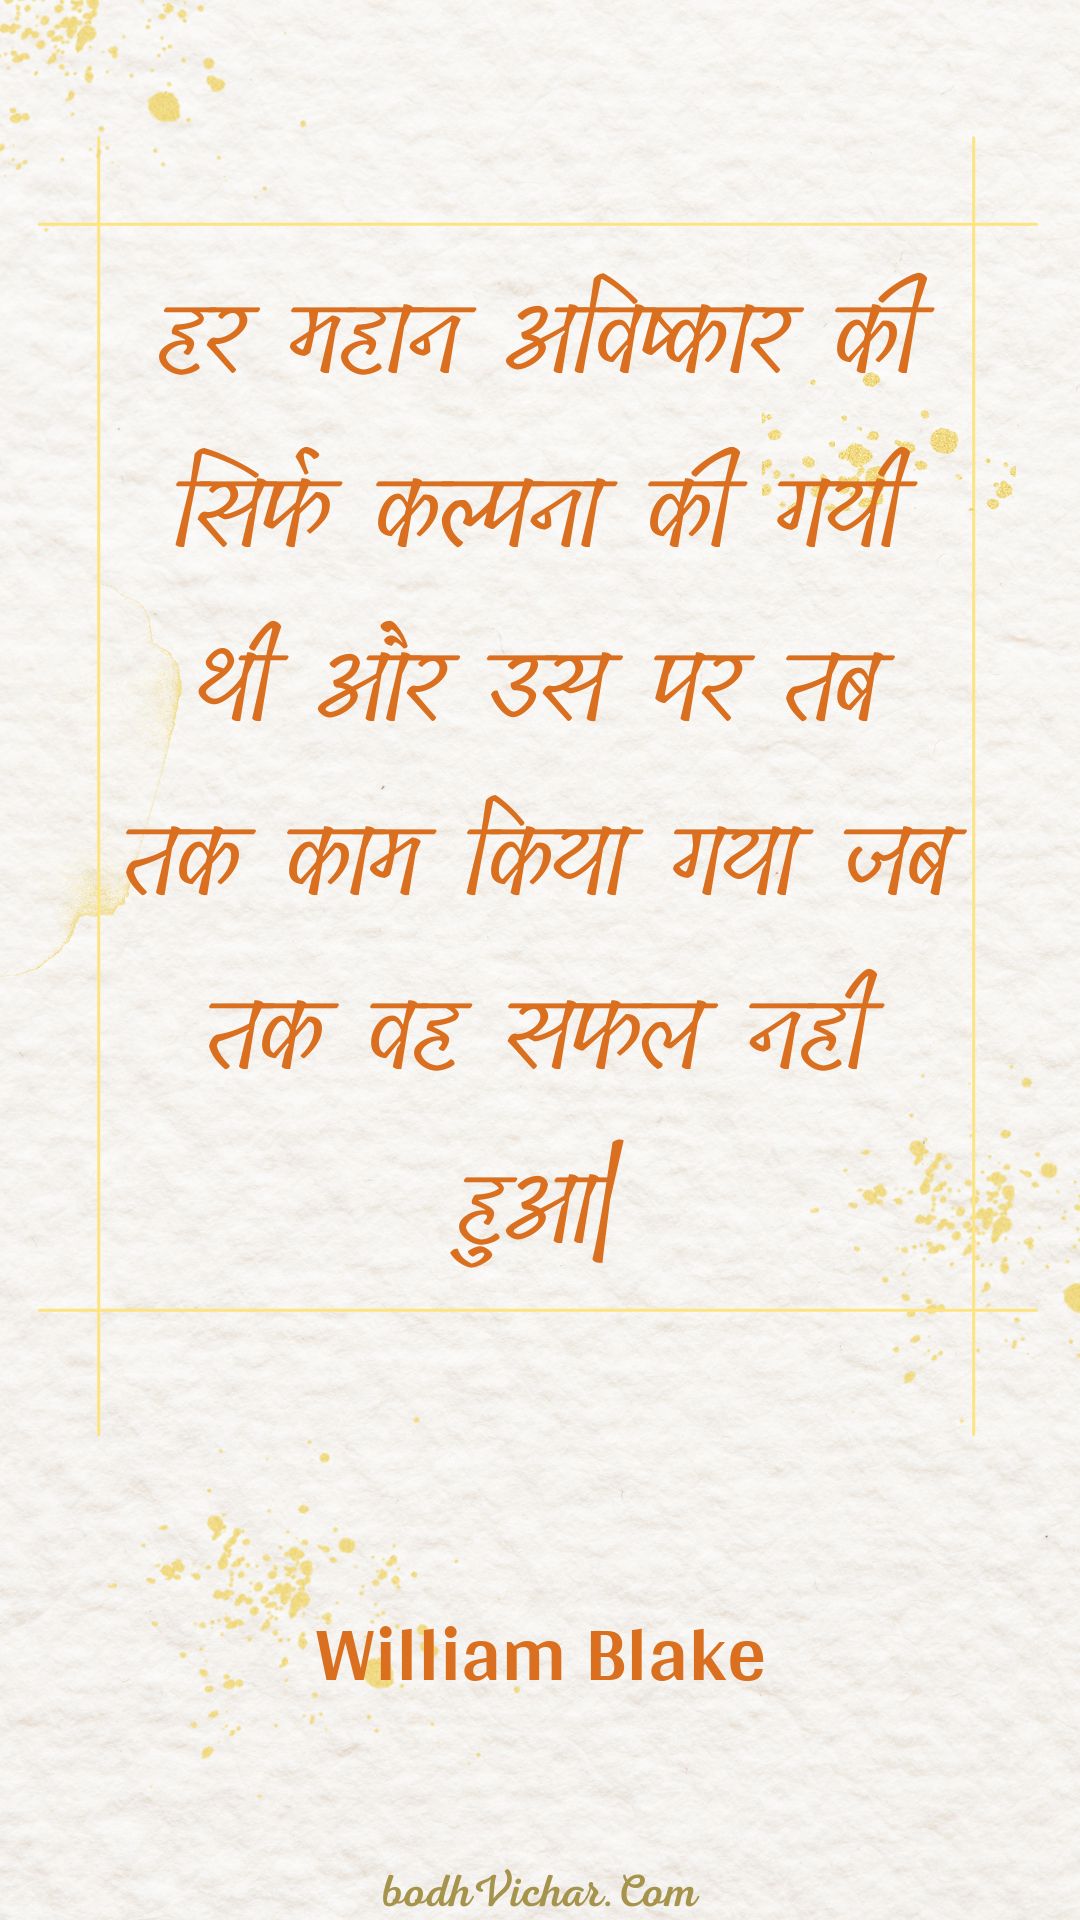 हर महान अविष्कार की
सिर्फ कल्पना की गयी
थी और उस पर तब
तक काम किया गया जब
तक वह सफल नही
हुआ|
William Blake
bodhVichar.Com